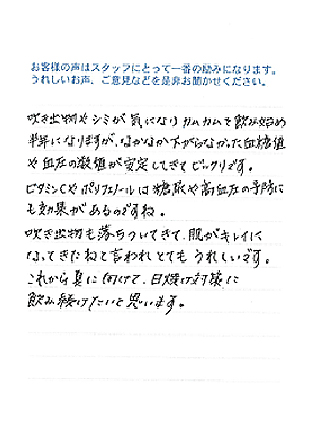 お客様の声はスタッフにとって一番の励みになります。
うれしいお声、ご意見などを是非お聞かせください。
吹き出物やシミが気になりカムカムを飲み始め
半年になりますが、なかなか下がらなかった血糖値
や血圧の数値が安定してきてビックリです。
ビタミンCやポリフェノールは糖尿や高血圧の予防に
も効果があるのですね。
吹き出物も落ちついてきて、肌がキレイに
なってきたねと言われとてもうれしいです。
これから夏に向けて、日焼け対策に
飲み続けたいと思います。